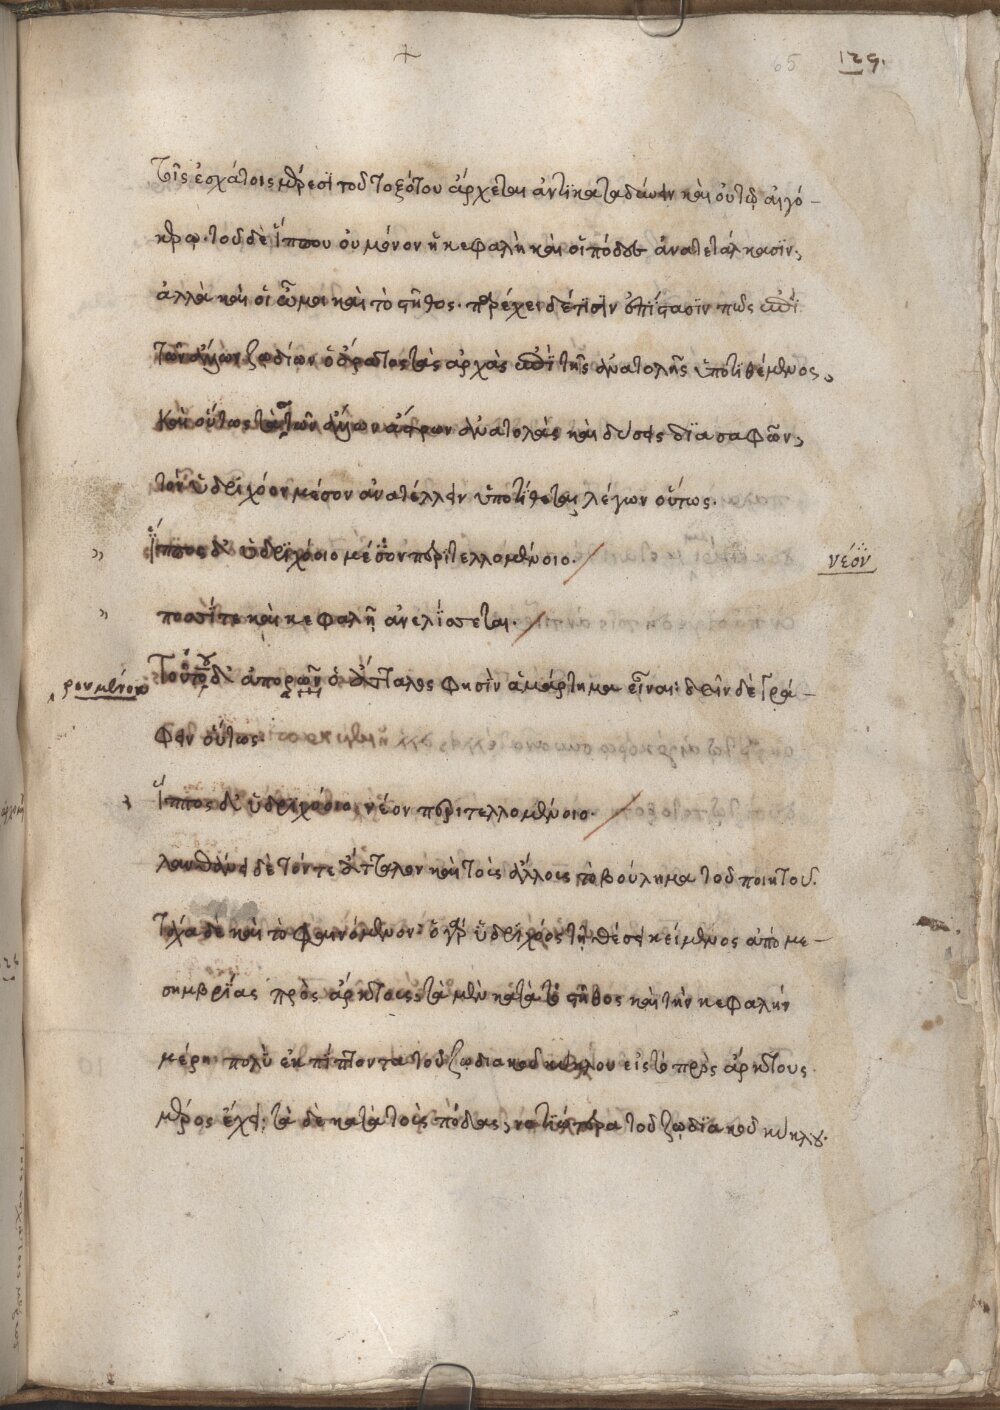 +
65 129.
τοῖς ἐσχάτοις μέρεσι τοῦ τοξότου ἄρχεται ἀντικαταδύειν καὶ οὐ τῷ αἰγό-
κερῳ. τοῦ δὲ ἵππου οὐ μόνον ἡ κεφαλὴ καὶ οἱ πόδες ἀνατετάλκασιν,
ἀλλὰ καὶ οἱ ὦμοι καὶ τὸ στῆθος. παρέχει δέ τισιν ἐπίστασιν πῶς ἐπὶ
τῶν ἄλλων ζῳδίων ὁ ἄρατος τὰς ἀρχὰς ἐπὶ τῆς ἀνατολῆς ὑποτιθέμενος,
καὶ οὕτως τὰς τῶν ἄλλων ἄστρων ἀνατολὰς καὶ δύσεις διασαφῶν,
τὸν ὑδριχόον μέσον ἀνατέλλειν ὑποτίθεται λέγων οὕτως.
" ἵππος δ' ὑδριχόοιο μέσον περιτελλομένοιο. / νέον
" ποσσί τε καὶ κεφαλῇ ἀνελίσσεται. /
ρουμένου Τούτου δ' ἀπορῶν ὁ ἄτταλος φησὶν ἁμάρτημα εἶναι· δεῖν δὲ γρά-
φειν οὕτως·
ἵππος δ' ὑδριχόοιο νέον περιτελλομένοιο. /
λανθάνει δὲ τόν τε ἄτταλον καὶ τοὺς ἄλλους τὸ βούλημα τοῦ ποιητοῦ.
τάχα δὲ καὶ τὸ φαινόμενον· ὁ γὰρ ὑδριχόος τῇ θέσει κείμενος ἀπὸ με-
σημβρίας πρὸς ἄρκτους, τὰ μὲν κατὰ τὸ στῆθος καὶ τὴν κεφαλὴν
μέρη πολὺ ἐκπίπτοντα τοῦ ζῳδιακοῦ κύκλου εἰς τὸ πρὸς ἄρκτους
μέρος ἔχει· τὰ δὲ κατὰ τοὺς πόδας, νοτιώτερα τοῦ ζῳδιακοῦ κύκλου.